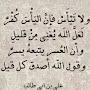 ولا تيأس فإن اليأس كفر
لعل الله يغني من قليل
وأن العسر يتبعه يسر
وقول الله أصدق كل قيل
علي بن أبي طالب